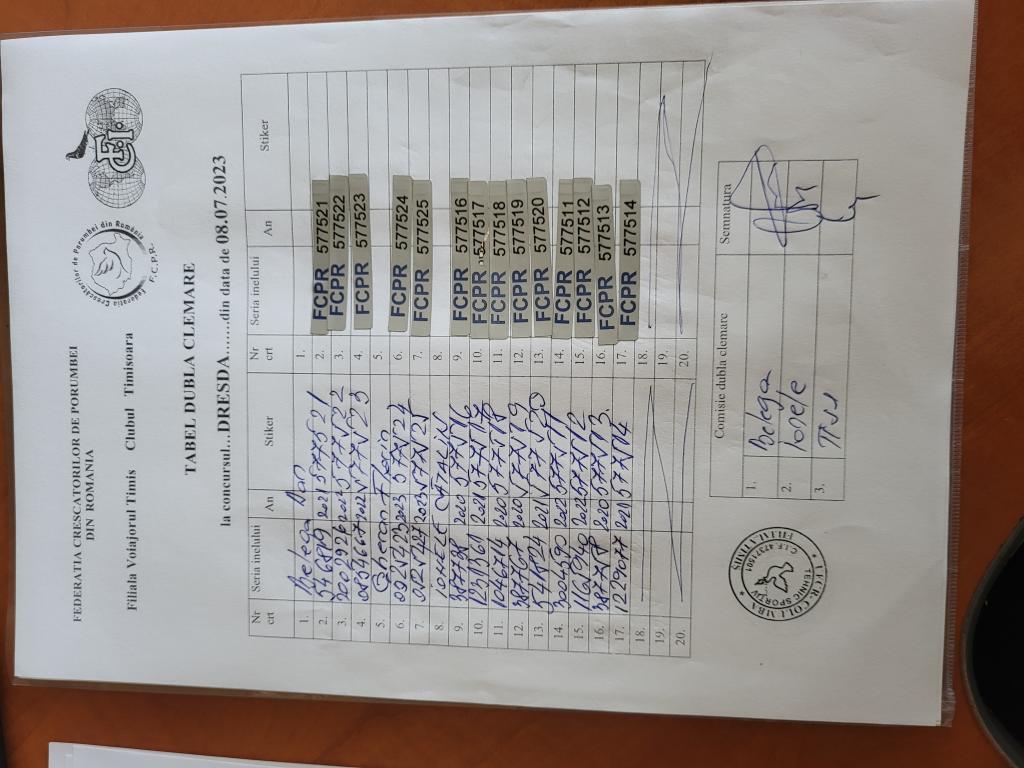 FEDERATIA CRESCATORILOR DE PORUMBEI
DIN ROMANIA
Federatia Crescatorilor de Porumbei din România
F.C.P.R.
F.C.I.
Filiala Voiajorul Timis Clubul Timisoara
TABEL DUBLA CLEMARE
la concursul...DRESDA......din data de 08.07.2023
Nr crt Seria inelului An Stiker Nr crt Seria inelului An Stiker
1. Belega Dan 1.
2. 546819 2021 577521 2. FCPR 577521
3. 577522 3. FCPR 577522
4. 577523 4. FCPR 577523
5. Gheran Florin 5.
6. 2023 577524 6. FCPR 577524
7. 2023 577525 7. FCPR 577525
8. IONELE CATALIN 8.
9. 2020 577516 9. FCPR 577516
10. 2021 577517 10. FCPR 577517
11. 1046714 2020 577518 11. FCPR 577518
12. 2020 577519 12. FCPR 577519
13. 2021 577520 13. FCPR 577520
14. 577511 14. FCPR 577511
15. 577512 15. FCPR 577512
16. 2020 577513 16. FCPR 577513
17. 1229077 2021 577514 17. FCPR 577514
18. 18.
19. 19.
20. 20.
Comisie dubla clemare Semnatura
1. Belega
2. Ionele
3.
COLUMBA
TEHNIC SPORTIV
C.I.F. 47371501
FILIALA TIMIS